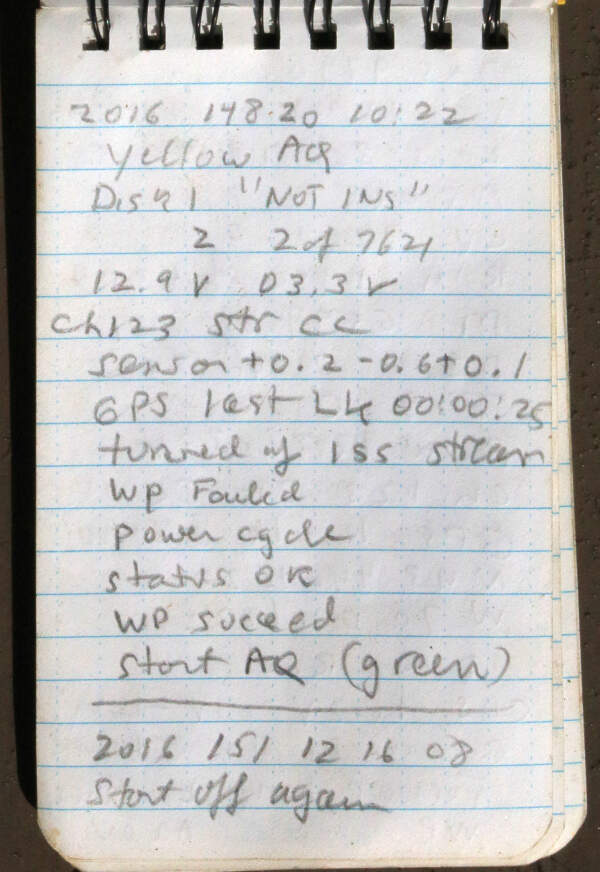 2016 148:20 10:22
Yellow AQ
Disk 1 "NOT INS"
2 2 of 7621
12.9 V 03.3 V
Ch123 str CC
sensor +0.2 -0.6 +0.1
GPS last Lk 00:00:25
turned of 1ss stream
WP Failed
power cycle
status OK
WP succeed
start AQ (green)
2016 151 12 16 08
Start off again